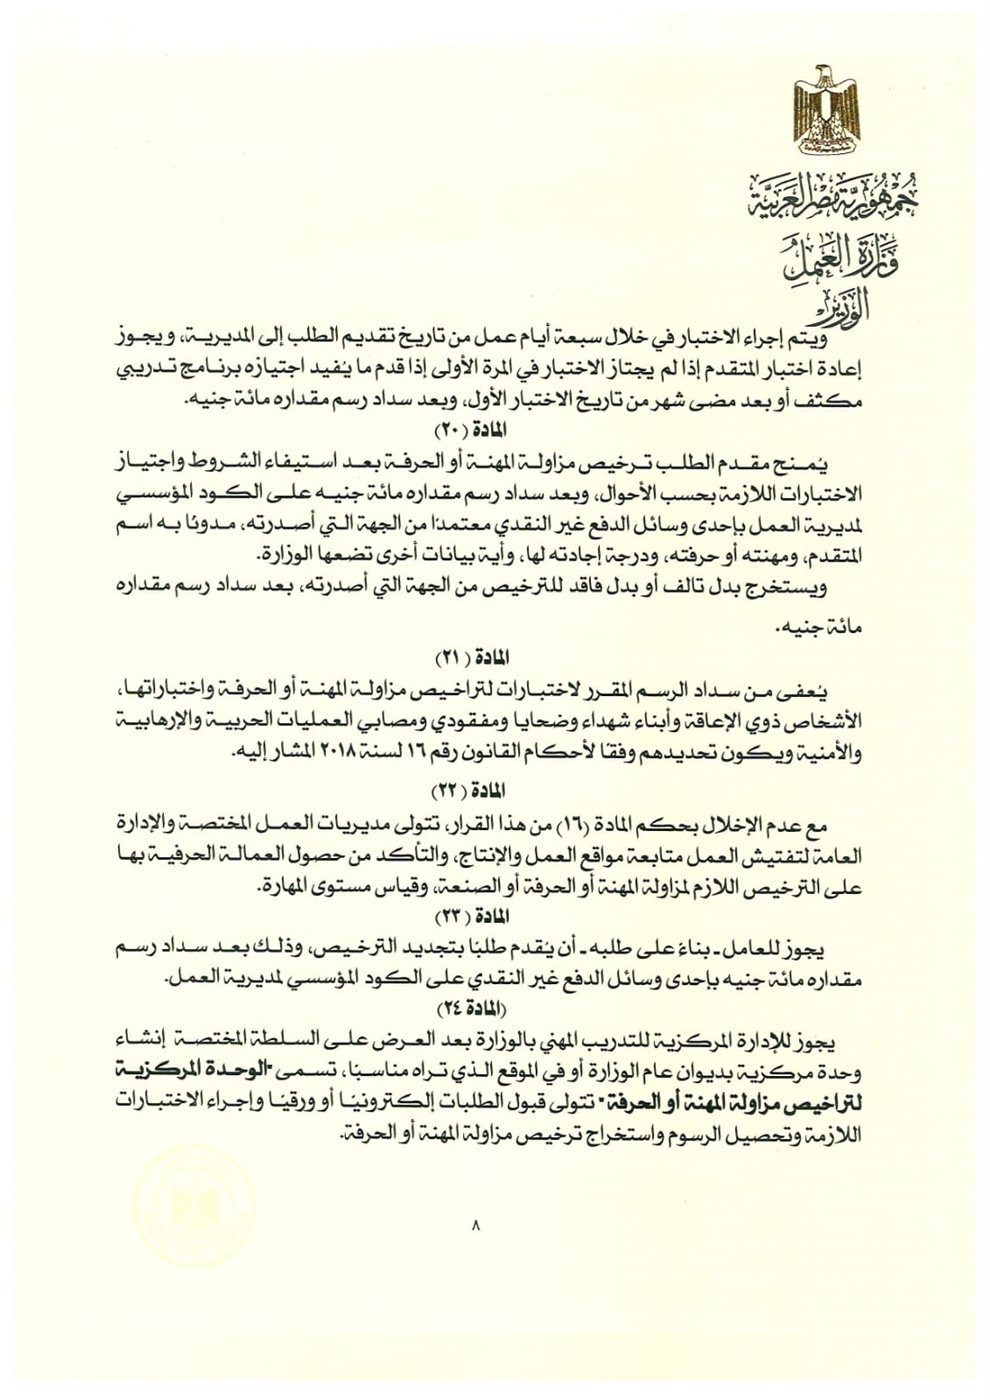 جمهورية مصر العربية
وزارة العمل
الوزير
ويتم إجراء الاختبار في خلال سبعة أيام عمل من تاريخ تقديم الطلب إلى المديرية، ويجوز
إعادة اختبار المتقدم إذا لم يجتاز الاختبار في المرة الأولى إذا قدم ما يُفيد اجتيازه برنامج تدريبي
مكثف أو بعد مضى شهر من تاريخ الاختبار الأول، وبعد سداد رسم مقداره مائة جنيه.
المادة (٢٠)
يُمنح مقدم الطلب ترخيص مزاولة المهنة أو الحرفة بعد استيفاء الشروط واجتياز
الاختبارات اللازمة بحسب الأحوال، وبعد سداد رسم مقداره مائة جنيه على الكود المؤسسي
لمديرية العمل بإحدى وسائل الدفع غير النقدي معتمدًا من الجهة التي أصدرته، مدونًا به اسم
المتقدم، ومهنته أو حرفته، ودرجة إجادته لها، وأية بيانات أخرى تضعها الوزارة.
ويستخرج بدل تالف أو بدل فاقد للترخيص من الجهة التي أصدرته، بعد سداد رسم مقداره
مائة جنيه.
المادة (٢١)
يُعفى من سداد الرسم المقرر لاختبارات لتراخيص مزاولة المهنة أو الحرفة واختباراتها،
الأشخاص ذوي الإعاقة وأبناء شهداء وضحايا ومفقودي ومصابي العمليات الحربية والإرهابية
والأمنية ويكون تحديدهم وفقًا لأحكام القانون رقم ١٦ لسنة ٢٠١٨ المشار إليه.
المادة (٢٢)
مع عدم الإخلال بحكم المادة (١٦) من هذا القرار، تتولى مديريات العمل المختصة والإدارة
العامة لتفتيش العمل متابعة مواقع العمل والإنتاج، والتأكد من حصول العمالة الحرفية بها
على الترخيص اللازم لمزاولة المهنة أو الحرفة أو الصنعة، وقياس مستوى المهارة.
المادة (٢٣)
يجوز للعامل - بناءً على طلبه - أن يُقدم طلبًا بتجديد الترخيص، وذلك بعد سداد رسم
مقداره مائة جنيه بإحدى وسائل الدفع غير النقدي على الكود المؤسسي لمديرية العمل.
(المادة ٢٤)
يجوز للإدارة المركزية للتدريب المهني بالوزارة بعد العرض على السلطة المختصة إنشاء
وحدة مركزية بديوان عام الوزارة أو في الموقع الذي تراه مناسبًا، تسمى "الوحدة المركزية
لتراخيص مزاولة المهنة أو الحرفة" تتولى قبول الطلبات إلكترونيًا أو ورقيًا وإجراء الاختبارات
اللازمة وتحصيل الرسوم واستخراج ترخيص مزاولة المهنة أو الحرفة.
٨